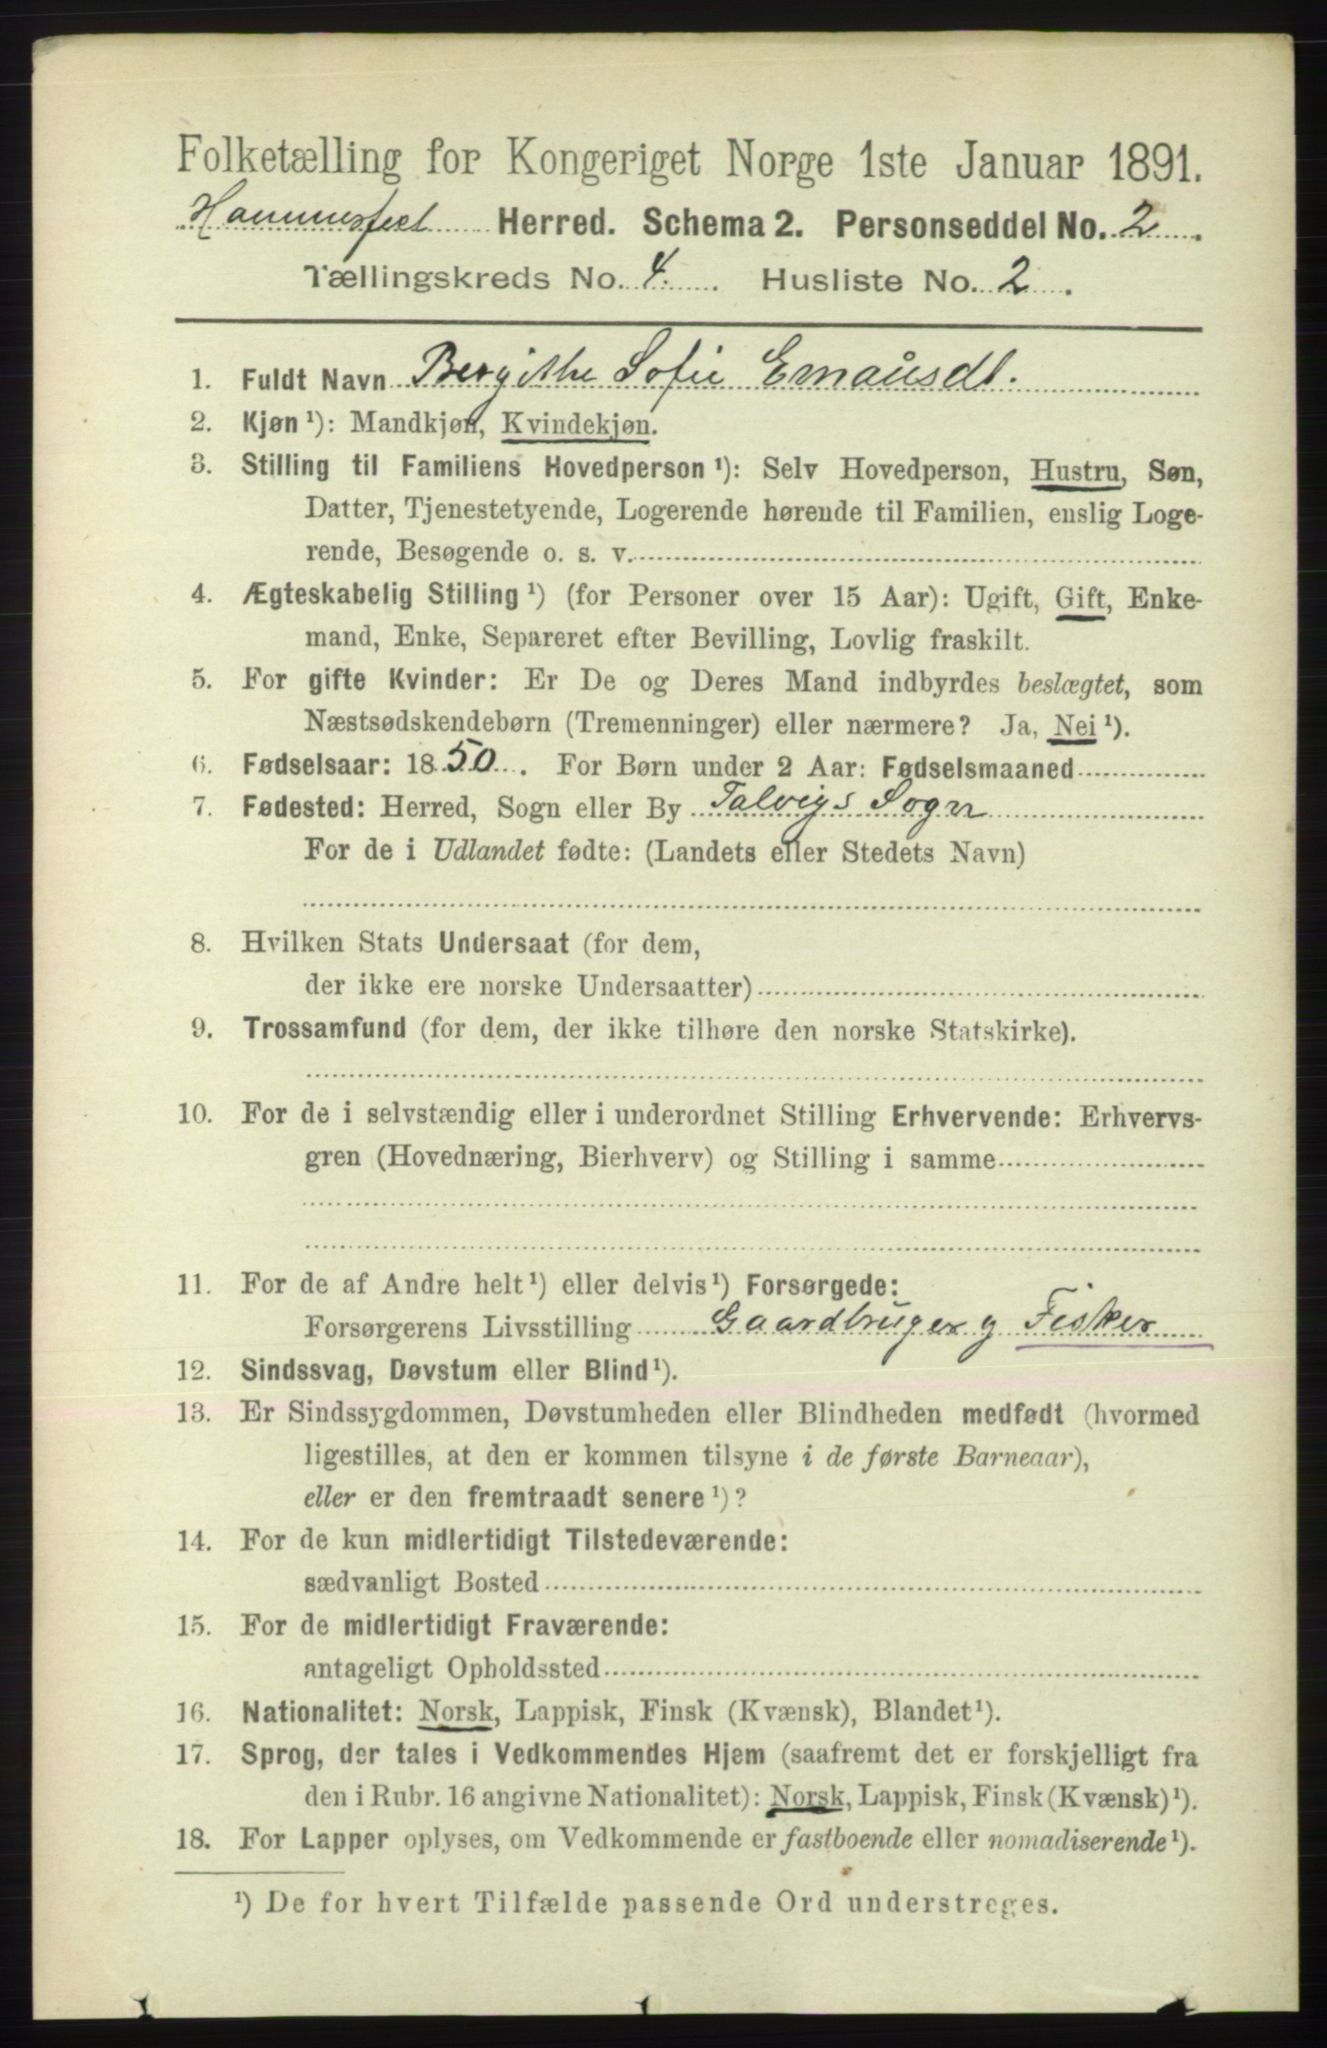 Folketælling for Kongeriget Norge 1ste Januar 1891.
Hammerfest Herred. Schema 2. Personseddel No. 2.
Tællingskreds No. 4. Husliste No. 2.
1. Fuldt Navn Bergithe Sofie Emausdt.
2. Kjøn ¹): Mandkjøn, Kvindekjøn.
3. Stilling til Familiens Hovedperson ¹): Selv Hovedperson, Hustru, Søn,
Datter, Tjenestetyende, Logerende hørende til Familien, enslig Loge-
rende, Besøgende o. s. v.
4. Ægteskabelig Stilling ¹) (for Personer over 15 Aar): Ugift, Gift, Enke-
mand, Enke, Separeret efter Bevilling, Lovlig fraskilt.
5. For gifte Kvinder: Er De og Deres Mand indbyrdes beslægtet, som
Næstsødskendebørn (Tremenninger) eller nærmere? Ja, Nei ¹).
6. Fødselsaar: 1850. For Børn under 2 Aar: Fødselsmaaned
7. Fødested: Herred, Sogn eller By Talvigs Sogn
For de i Udlandet fødte: (Landets eller Stedets Navn)
8. Hvilken Stats Undersaat (for dem,
der ikke ere norske Undersaatter)
9. Trossamfund (for dem, der ikke tilhøre den norske Statskirke).
10. For de i selvstændig eller i underordnet Stilling Erhvervende: Erhvervs-
gren (Hovednæring, Bierhverv) og Stilling i samme
11. For de af Andre helt ¹) eller delvis ¹) Forsørgede:
Forsørgerens Livsstilling Gaardbruger g Fisker
12. Sindssvag, Døvstum eller Blind ¹).
13. Er Sindssygdommen, Døvstumheden eller Blindheden medfødt (hvormed
ligestilles, at den er kommen tilsyne i de første Barneaar),
eller er den fremtraadt senere ¹)?
14. For de kun midlertidigt Tilstedeværende:
sædvanligt Bosted
15. For de midlertidigt Fraværende:
antageligt Opholdssted
16. Nationalitet: Norsk, Lappisk, Finsk (Kvænsk), Blandet ¹).
17. Sprog, der tales i Vedkommendes Hjem (saafremt det er forskjelligt fra
den i Rubr. 16 angivne Nationalitet): Norsk, Lappisk, Finsk (Kvænsk) ¹).
18. For Lapper oplyses, om Vedkommende er fastboende eller nomadiserende ¹).
¹) De for hvert Tilfælde passende Ord understreges.